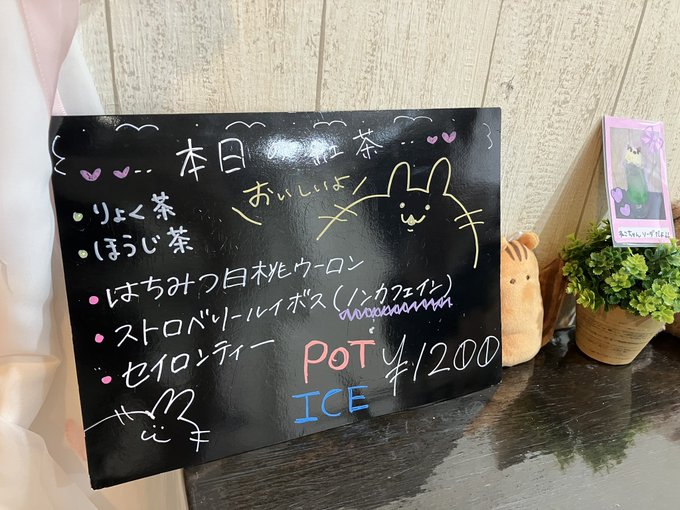 本日の紅茶
おいしいよ
りょく茶
ほうじ茶
はちみつ白桃ウーロン
ストロベリールイボス(ノンカフェイン)
セイロンティー
POT ¥1200
ICE